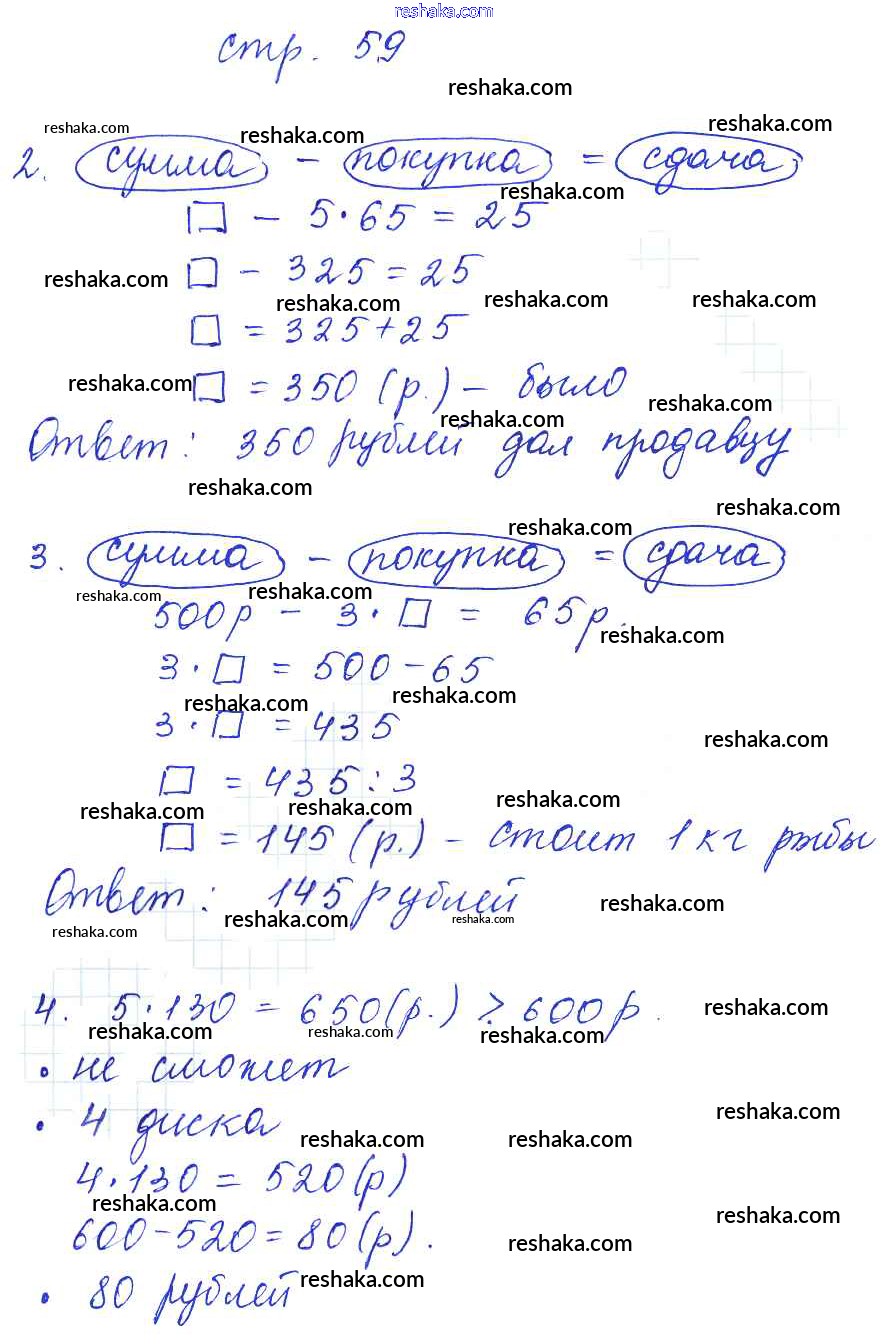 reshaka.com
стр. 59
reshaka.com
reshaka.com reshaka.com reshaka.com
2. сумма - покупка = сдача
reshaka.com
□ - 5·65 = 25
reshaka.com □ - 325 = 25
reshaka.com reshaka.com reshaka.com
□ = 325+25
reshaka.com □ = 350 (р.) - было
reshaka.com reshaka.com
Ответ: 350 рублей дал продавцу
reshaka.com
reshaka.com reshaka.com
3. сумма - покупка = сдача
reshaka.com reshaka.com
500р - 3·□ = 65р.
reshaka.com
3·□ = 500-65
reshaka.com reshaka.com
3·□ = 435
reshaka.com
□ = 435:3
reshaka.com reshaka.com reshaka.com
□ = 145 (р.) - стоит 1кг рыбы
Ответ: 145 рублей
reshaka.com reshaka.com reshaka.com reshaka.com
4. 5·130 = 650(р.) > 600р.
reshaka.com
reshaka.com reshaka.com reshaka.com
• не сможет
• 4 диска
reshaka.com
reshaka.com reshaka.com
4·130 = 520(р)
reshaka.com reshaka.com
600-520=80(р).
reshaka.com
• 80 рублей
reshaka.com